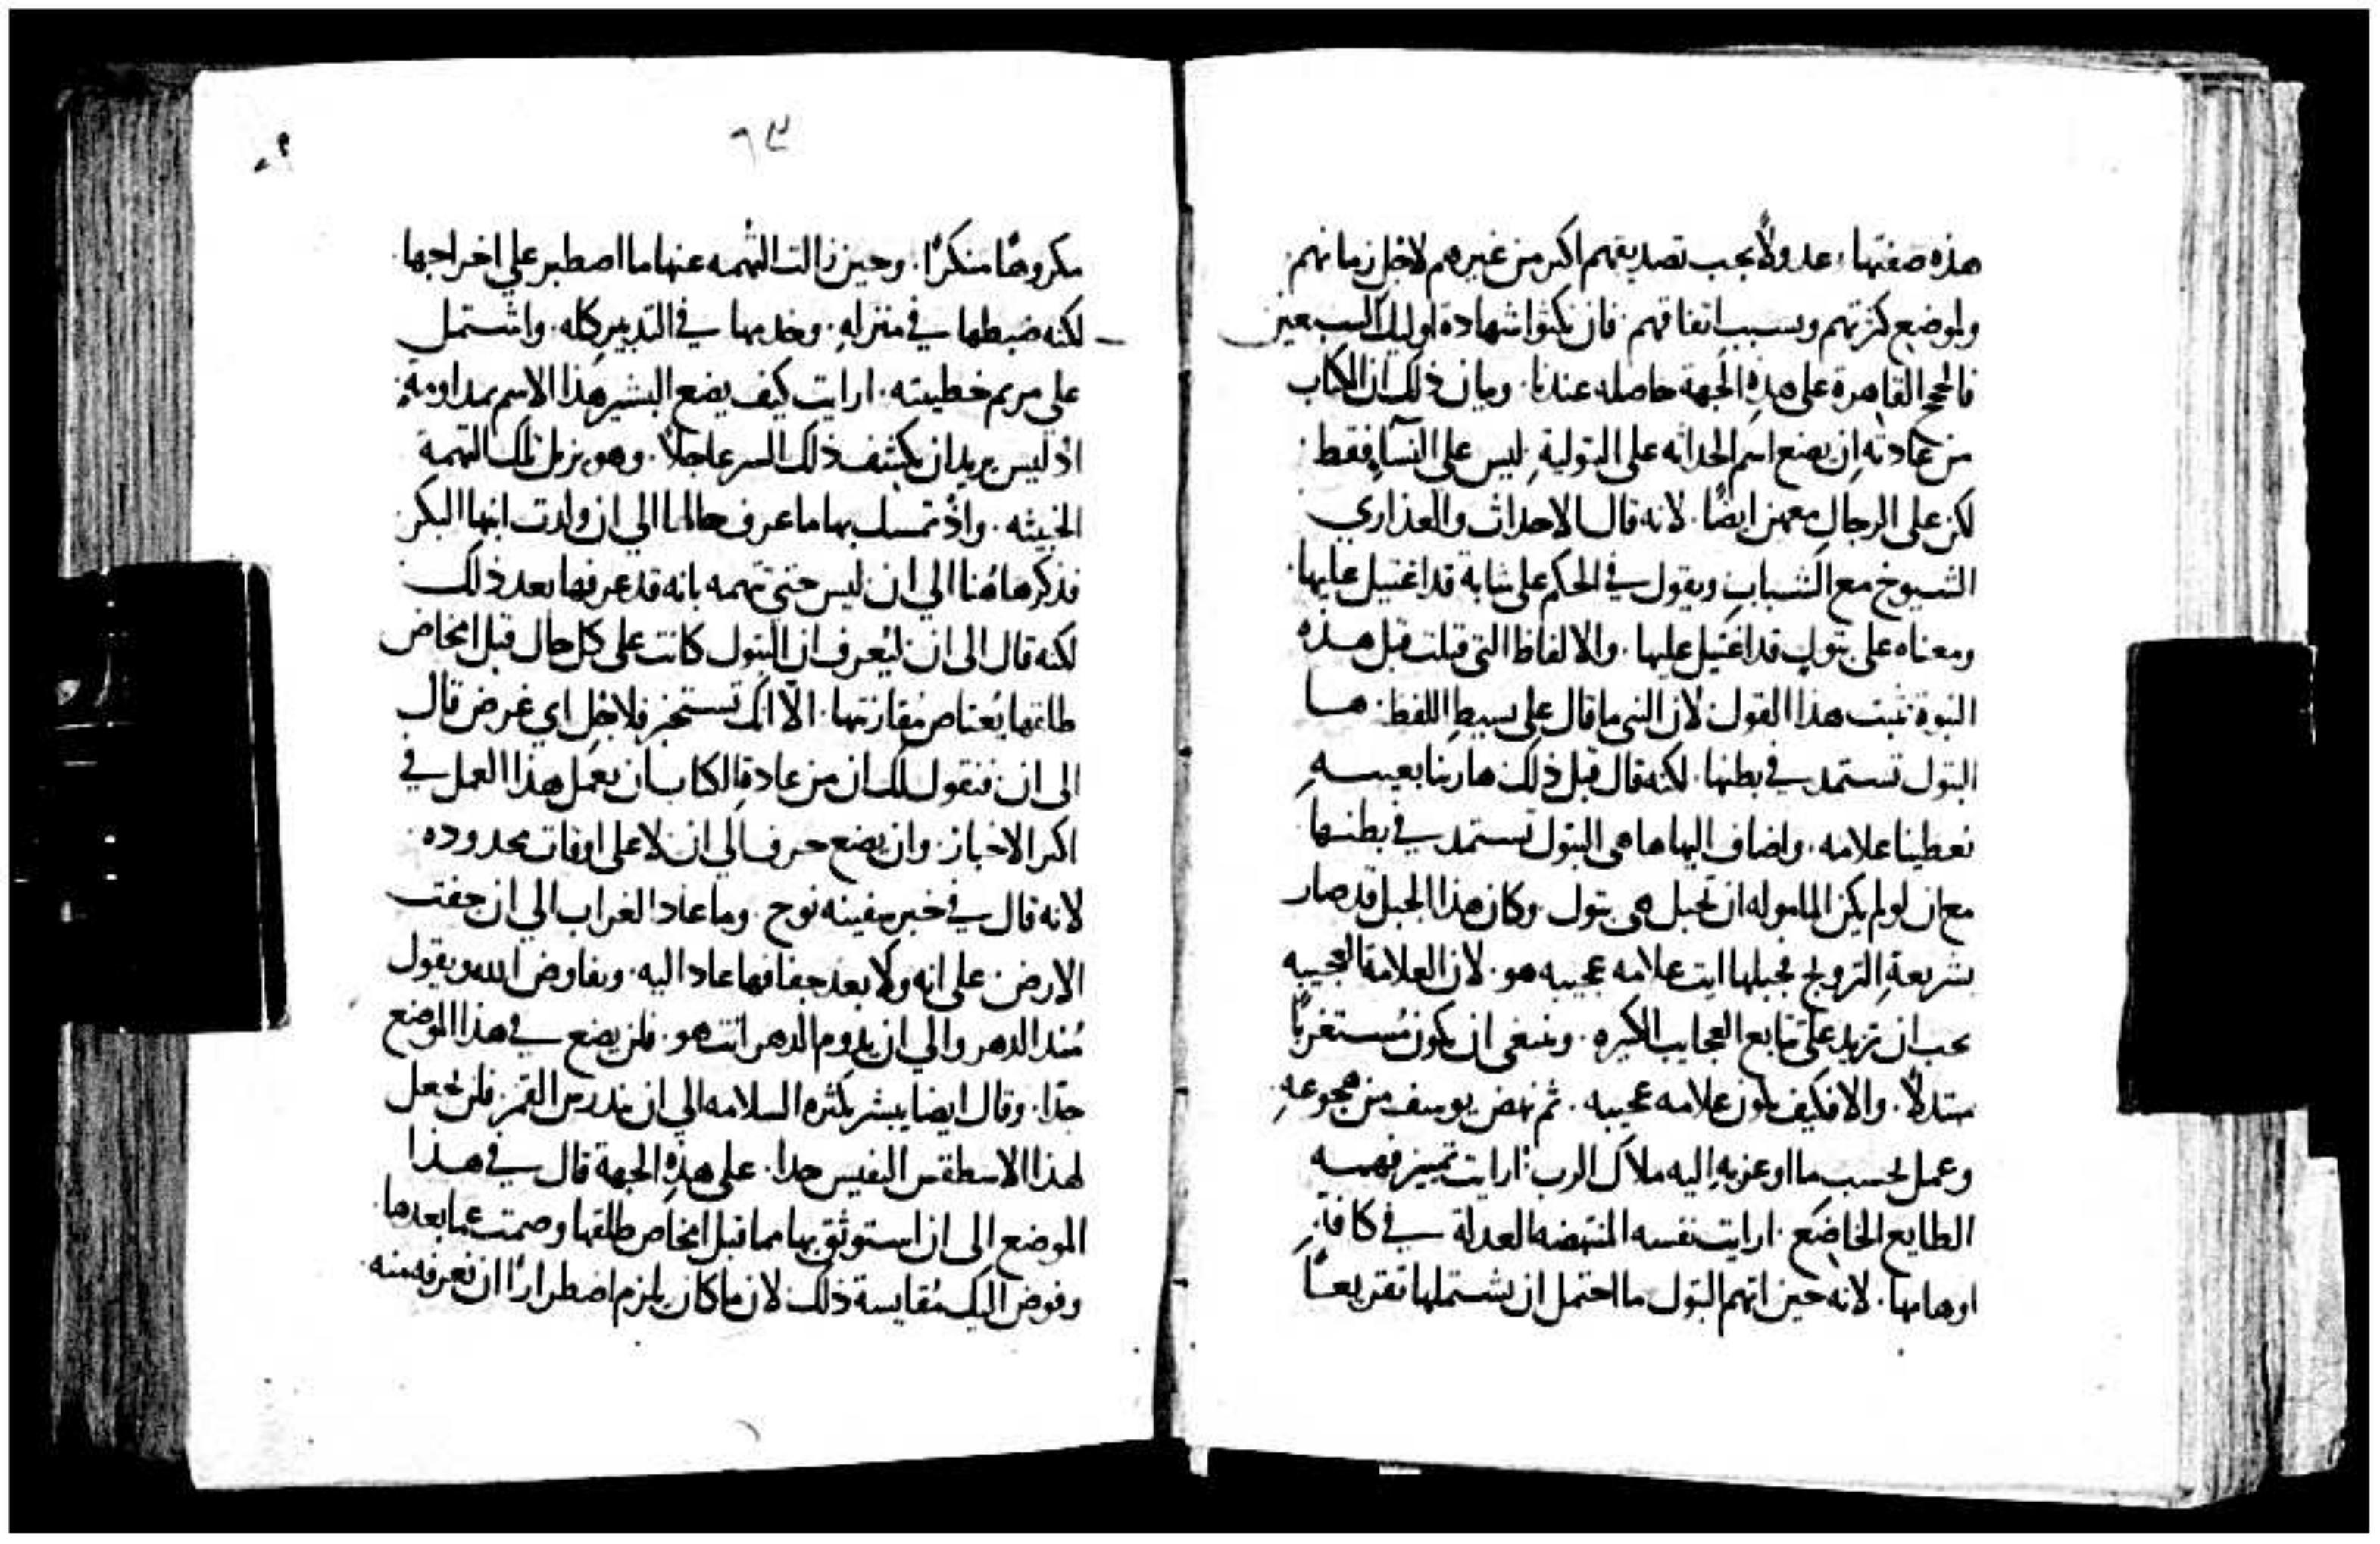 هذه صفتها، عدولاً يجب تصديقهم اكثر من غيرهم لاجل زمانهم
ولموضع كثرتهم وبسبب اتفاقهم. فان نكثوا شهادة اوليك السبعين
فالحجج القاهرة على هذه الجهة حاصله عندنا. وبيان ذلك ان الكتاب
من عادته ان يضع اسم الحداثه على البتولية. ليس على النسآ فقط
لكن على الرجال معهن ايضًا. لانه قال الاحداث والعذاري
الشيوخ مع الشباب ويقول في الحكم على شابة قد اغتيل عليها
ومعناه على بتول قد اغتيل عليها. والالفاظ التي قيلت قبل هذه
النبوة تثبت هذا القول لان النبي ما قال على بسيط اللفظ. ها
البتول تستمد في بطنها. لكنه قال قبل ذلك ها ربنا بعينه
يعطينا علامه. واضاف اليها ها هي البتول تستمد في بطنها
مع ان لو لم يكن المامولة ان تحبل هي بتول. وكان هذا الحبل قد صار
بشريعة التزويج فحبلها ايت علامه عجيبه هو. لان العلامة العجيبه
يجب ان تزيد على تتابع العجايب الكثيره. وينبغي ان يكون مستغربًا
مبتدلاً. والا فكيف يكون علامه عجيبه. ثم نهض يوسف من هجوعه
وعمل بحسب ما اوعز به اليه ملاك الرب. ارايت تمييز فهمه
الطايع الخاضع. ارايت نفسه المنتهضه العدلة في كافة
اوهامها. لانه حين اتهم البتول ما احتمل ان يشتملها تقريعًا
٦٣
مكروهًا منكرًا. وحين زالت التهمه عنها ما اصطبر علي اخراجها
لكنه ضبطها في منزله. وخدمها في التدبير كله. واشتمل
علي مريم خطيبته. ارايت كيف يضع البشير هذا الاسم بمداومة
اذ ليس يريد ان يكشف ذلك السر عاجلاً. وهو يزيل تلك التهمة
الخبيثه. واذ تمسك بها ما عرف حالها الي ان ولدت ابنها البكر
فذكر هاهُنا الي ان ليس حتي تتهمه بانه قد عرفها بعد ذلك
لكنه قال الى ان ليُعرف ان البتول كانت على كل حال قبل امخاض
طلقها يُعتاص مقارنتها. الّا انك تستخبر فلاجل اي غرض قال
الى ان فنقول لك ان من عادة الكتاب ان يعمل هذا العمل في
اكثر الاخبار. وان يضع حرف الي ان لا على اوقات محدوده
لانه قال في خبر سفينه نوح. وما عاد الغراب الي ان جفت
الارض على انه ولا بعد جفافها عاد اليه. ويفاوض الله ويقول
مُند الدهر والي ان يدوم الدهر انت هو. فلن يضع في هذا الموضع
حدًا. وقال ايضا يبشر بكثره السلامه الي ان يندرس القمر. فلن يجعل
لهذا الاسطقس النفيس حدا. على هذه الجهة قال في هذا
الموضع الى ان استوثق بها مما قبل امخاض طلقها وصمت عما بعدها
وفوض اليك مُقايسة ذلك لان ما كان يلزم اضطرارًا ان نعرفه منه